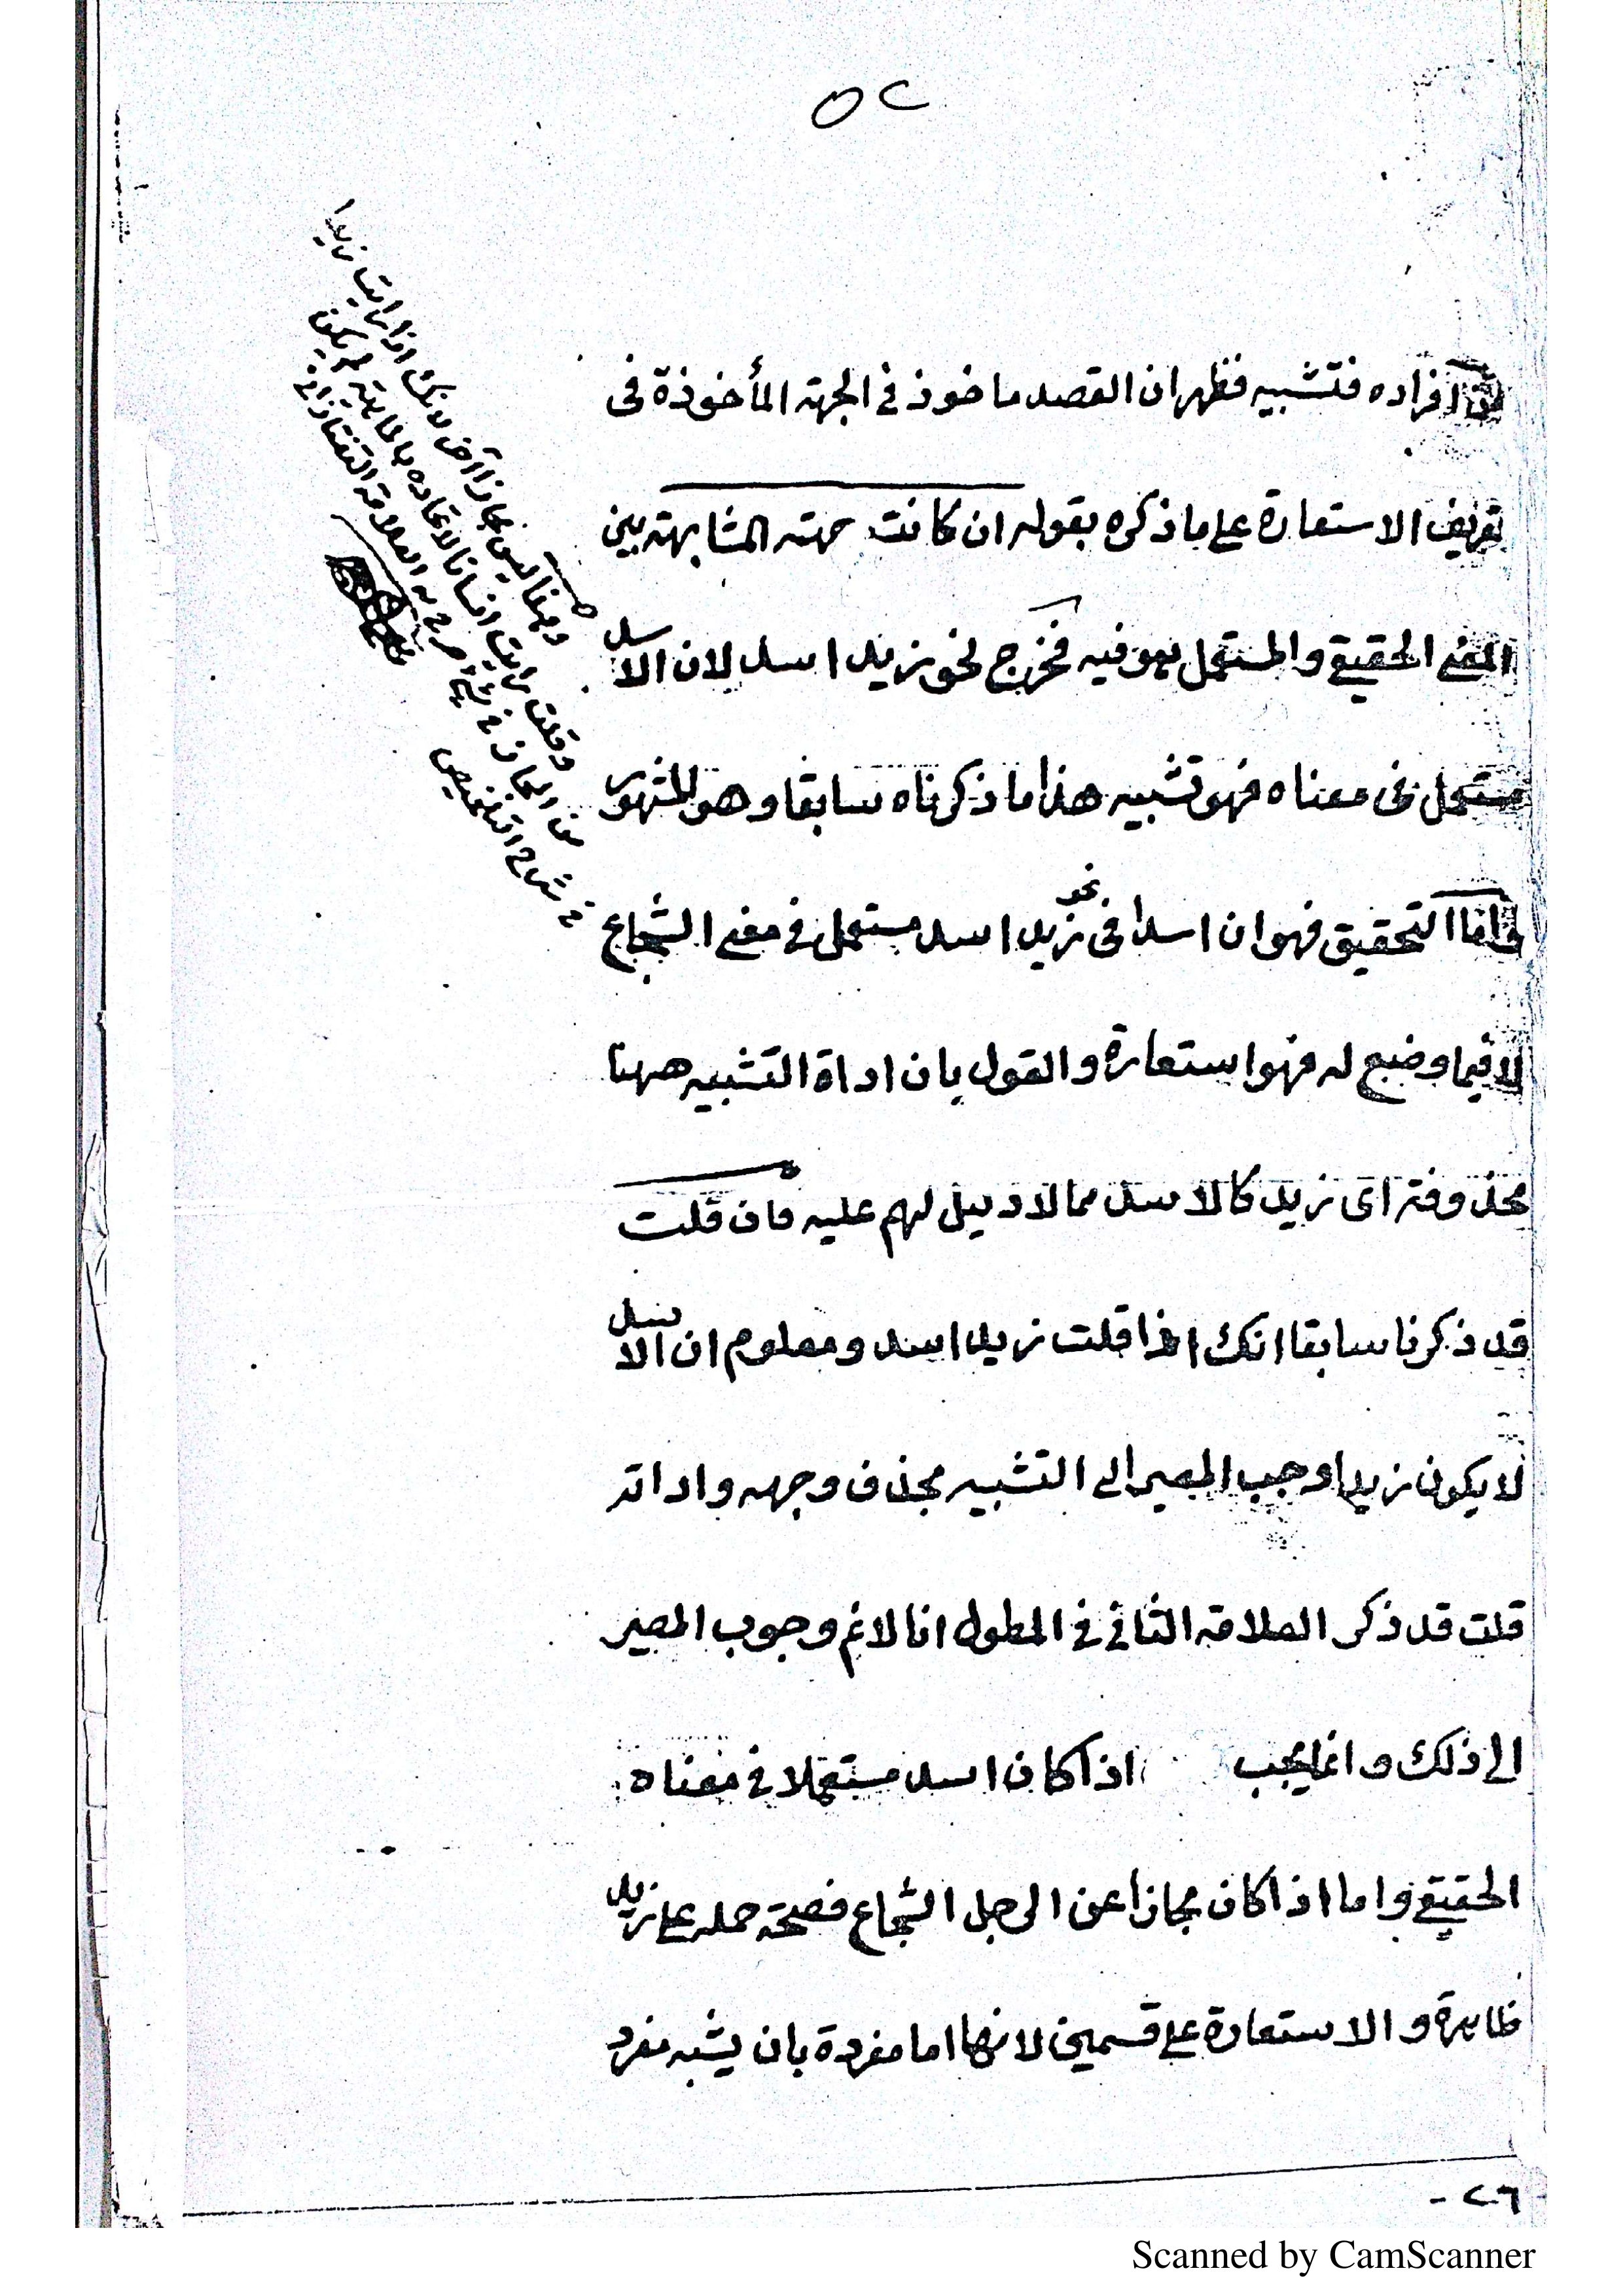 ٥٢
من افراده فتشبيه فظهر ان القصد ماخوذ في الجهة المأخوذة فى
تعريف الاستعارة على ما ذكره بقوله ان كانت جهته المشابهته بين
المعنى الحقيقي والمستعمل هو فيه فخرج نحو زيد اسد لان الاسد
مستعمل فى معناه فهو تشبيه هذا ما ذكرناه سابقا وهو المشهور
واما التحقيق فهو ان اسدا فى نحو زيد اسد مستعمل في معنى الشجاع
لا فيما وضع له فهو استعارة والقول بان اداة التشبيه ههنا
محذوفة اى زيد كالاسد مما لا دليل لهم عليه فان قلت
قد ذكرنا سابقا انك اذا قلت زيد اسد ومعلوم ان الاسد
لا يكون زيدا وجب المصير الى التشبيه بحذف وجهه واداته
قلت قد ذكر العلامة الثاني في المطول انا لا نم وجوب المصير
الى ذلك وانما يجب اذا كان اسد مستعملا في معناه
الحقيقي واما اذا كان مجازا عن الرجل الشجاع فصحة حمله على زيد
ظاهرة والاستعارة على قسمين لانها اما مفردة بان يشبه مفرد
وههنا ليس مجازا آخر لانك اذا رايت زيدا
وقلت رايت انسانا لاتحاده بالماهية لم يكن
من المجاز في شيء صرح به العلامة التفتازاني
في شرح التلخيص
٢٦ -
Scanned by CamScanner